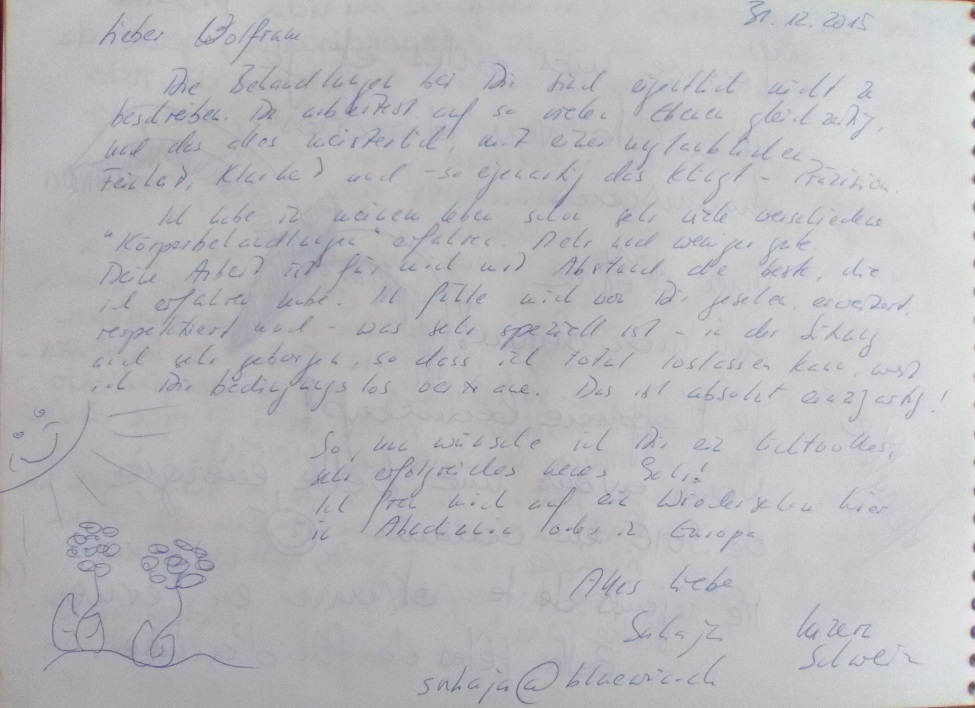 31.12.2015
Lieber Wolfram
Die Behandlungen bei Dir sind eigentlich nicht zu
beschreiben. Du arbeitest auf so vielen Ebenen gleichzeitig,
und das alles meisterlich, mit einer unglaublichen
Feinheit, Klarheit und - so eigenartig das klingt - Präzision.
Ich habe in meinem Leben schon sehr viele verschiedene
"Körperbehandlungen" erfahren. Mehr und weniger gute.
Deine Arbeit ist für mich mit Abstand die beste, die
ich erfahren habe. Ich fühle mich von Dir gesehen, erweitert,
respektiert und - was sehr speziell ist - in der Sitzung
auch sehr geborgen, so dass ich total loslassen kann, weil
ich Dir bedingungslos vertraue. Das ist absolut einzigartig!
So, nun wünsche ich Dir ein lichtvolles,
sehr erfolgreiches neues Jahr!
Ich freu mich auf ein Wiedersehen hier
in oder in Europa.
Alles Liebe
Luzern
Schweiz
@bluewin.ch